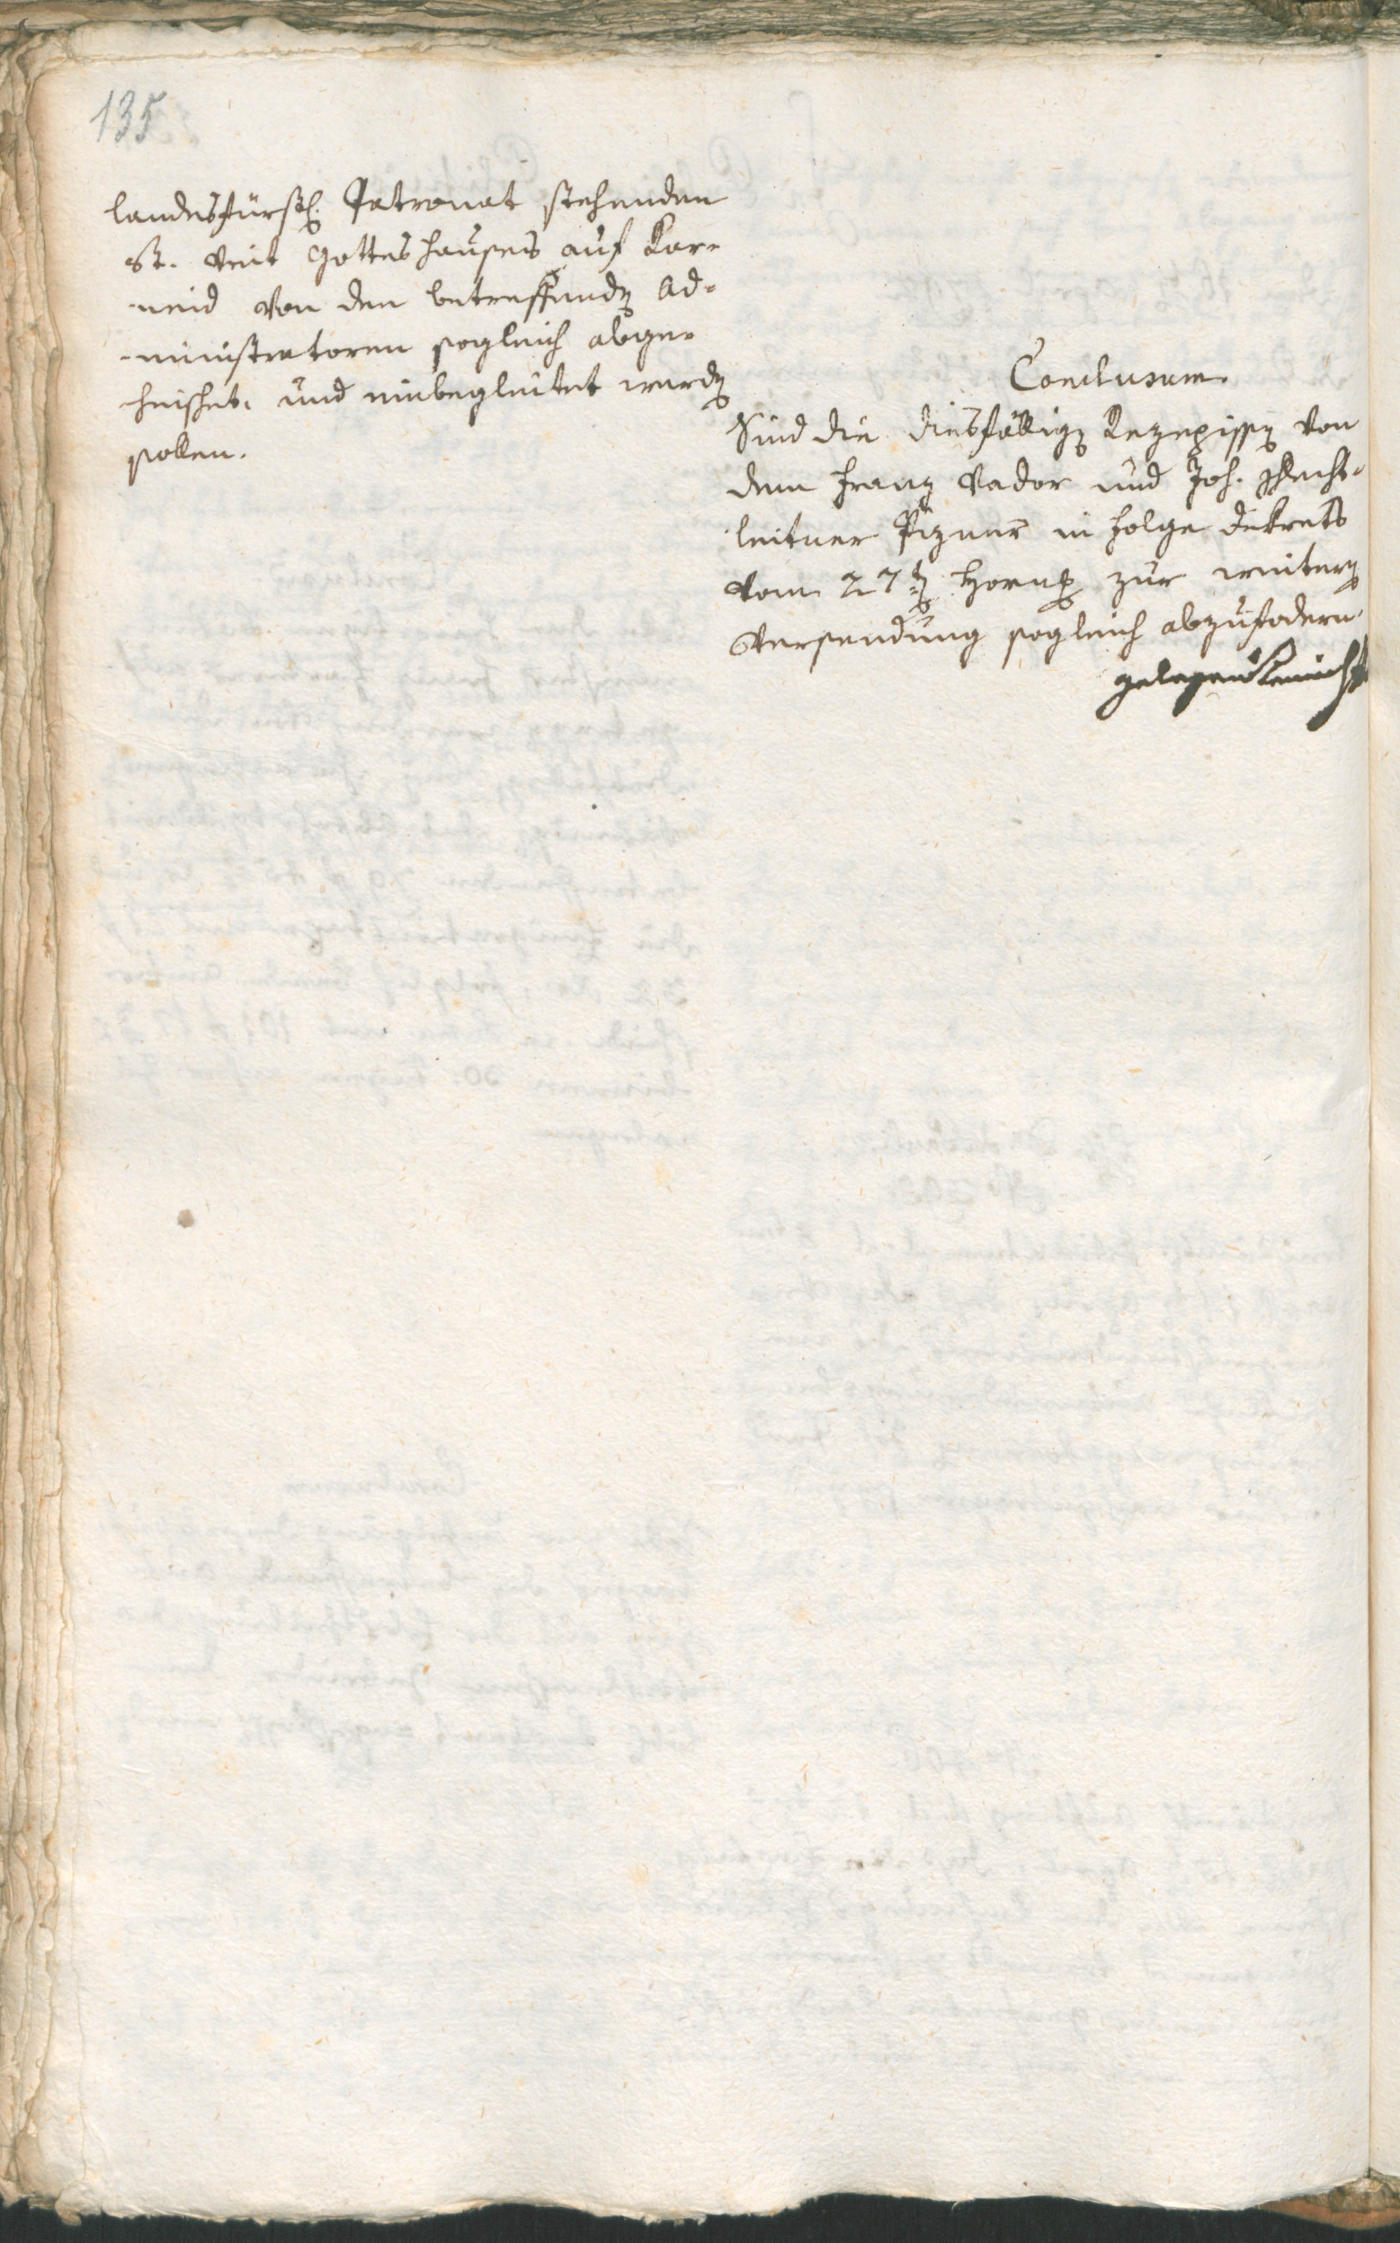 135
landesfürstl. Patronat stehenden
St. Veit Gotteshauses auf Kar-
-neid von den betreffenden Ad-
-ministratoren sogleich abge-
heischet. und einbegleitet werden
sollen.
Conclusum.
Sind die diesfälligen Rezepissen von
dem Franz Vador und Joh.
leitner in Folge Dekrets
vom 27ten Hornung zur weitern
Versendung sogleich abzufodern.
gelesen